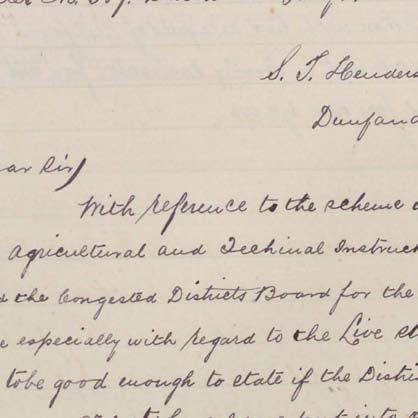 S. T. Henders
Dunfana
ar Sir
With reference to the scheme
agricultural and Techinal Instruc
the Congested Districts Board for the
especially with regard to the Live st
tobe good enough to state if the Distri